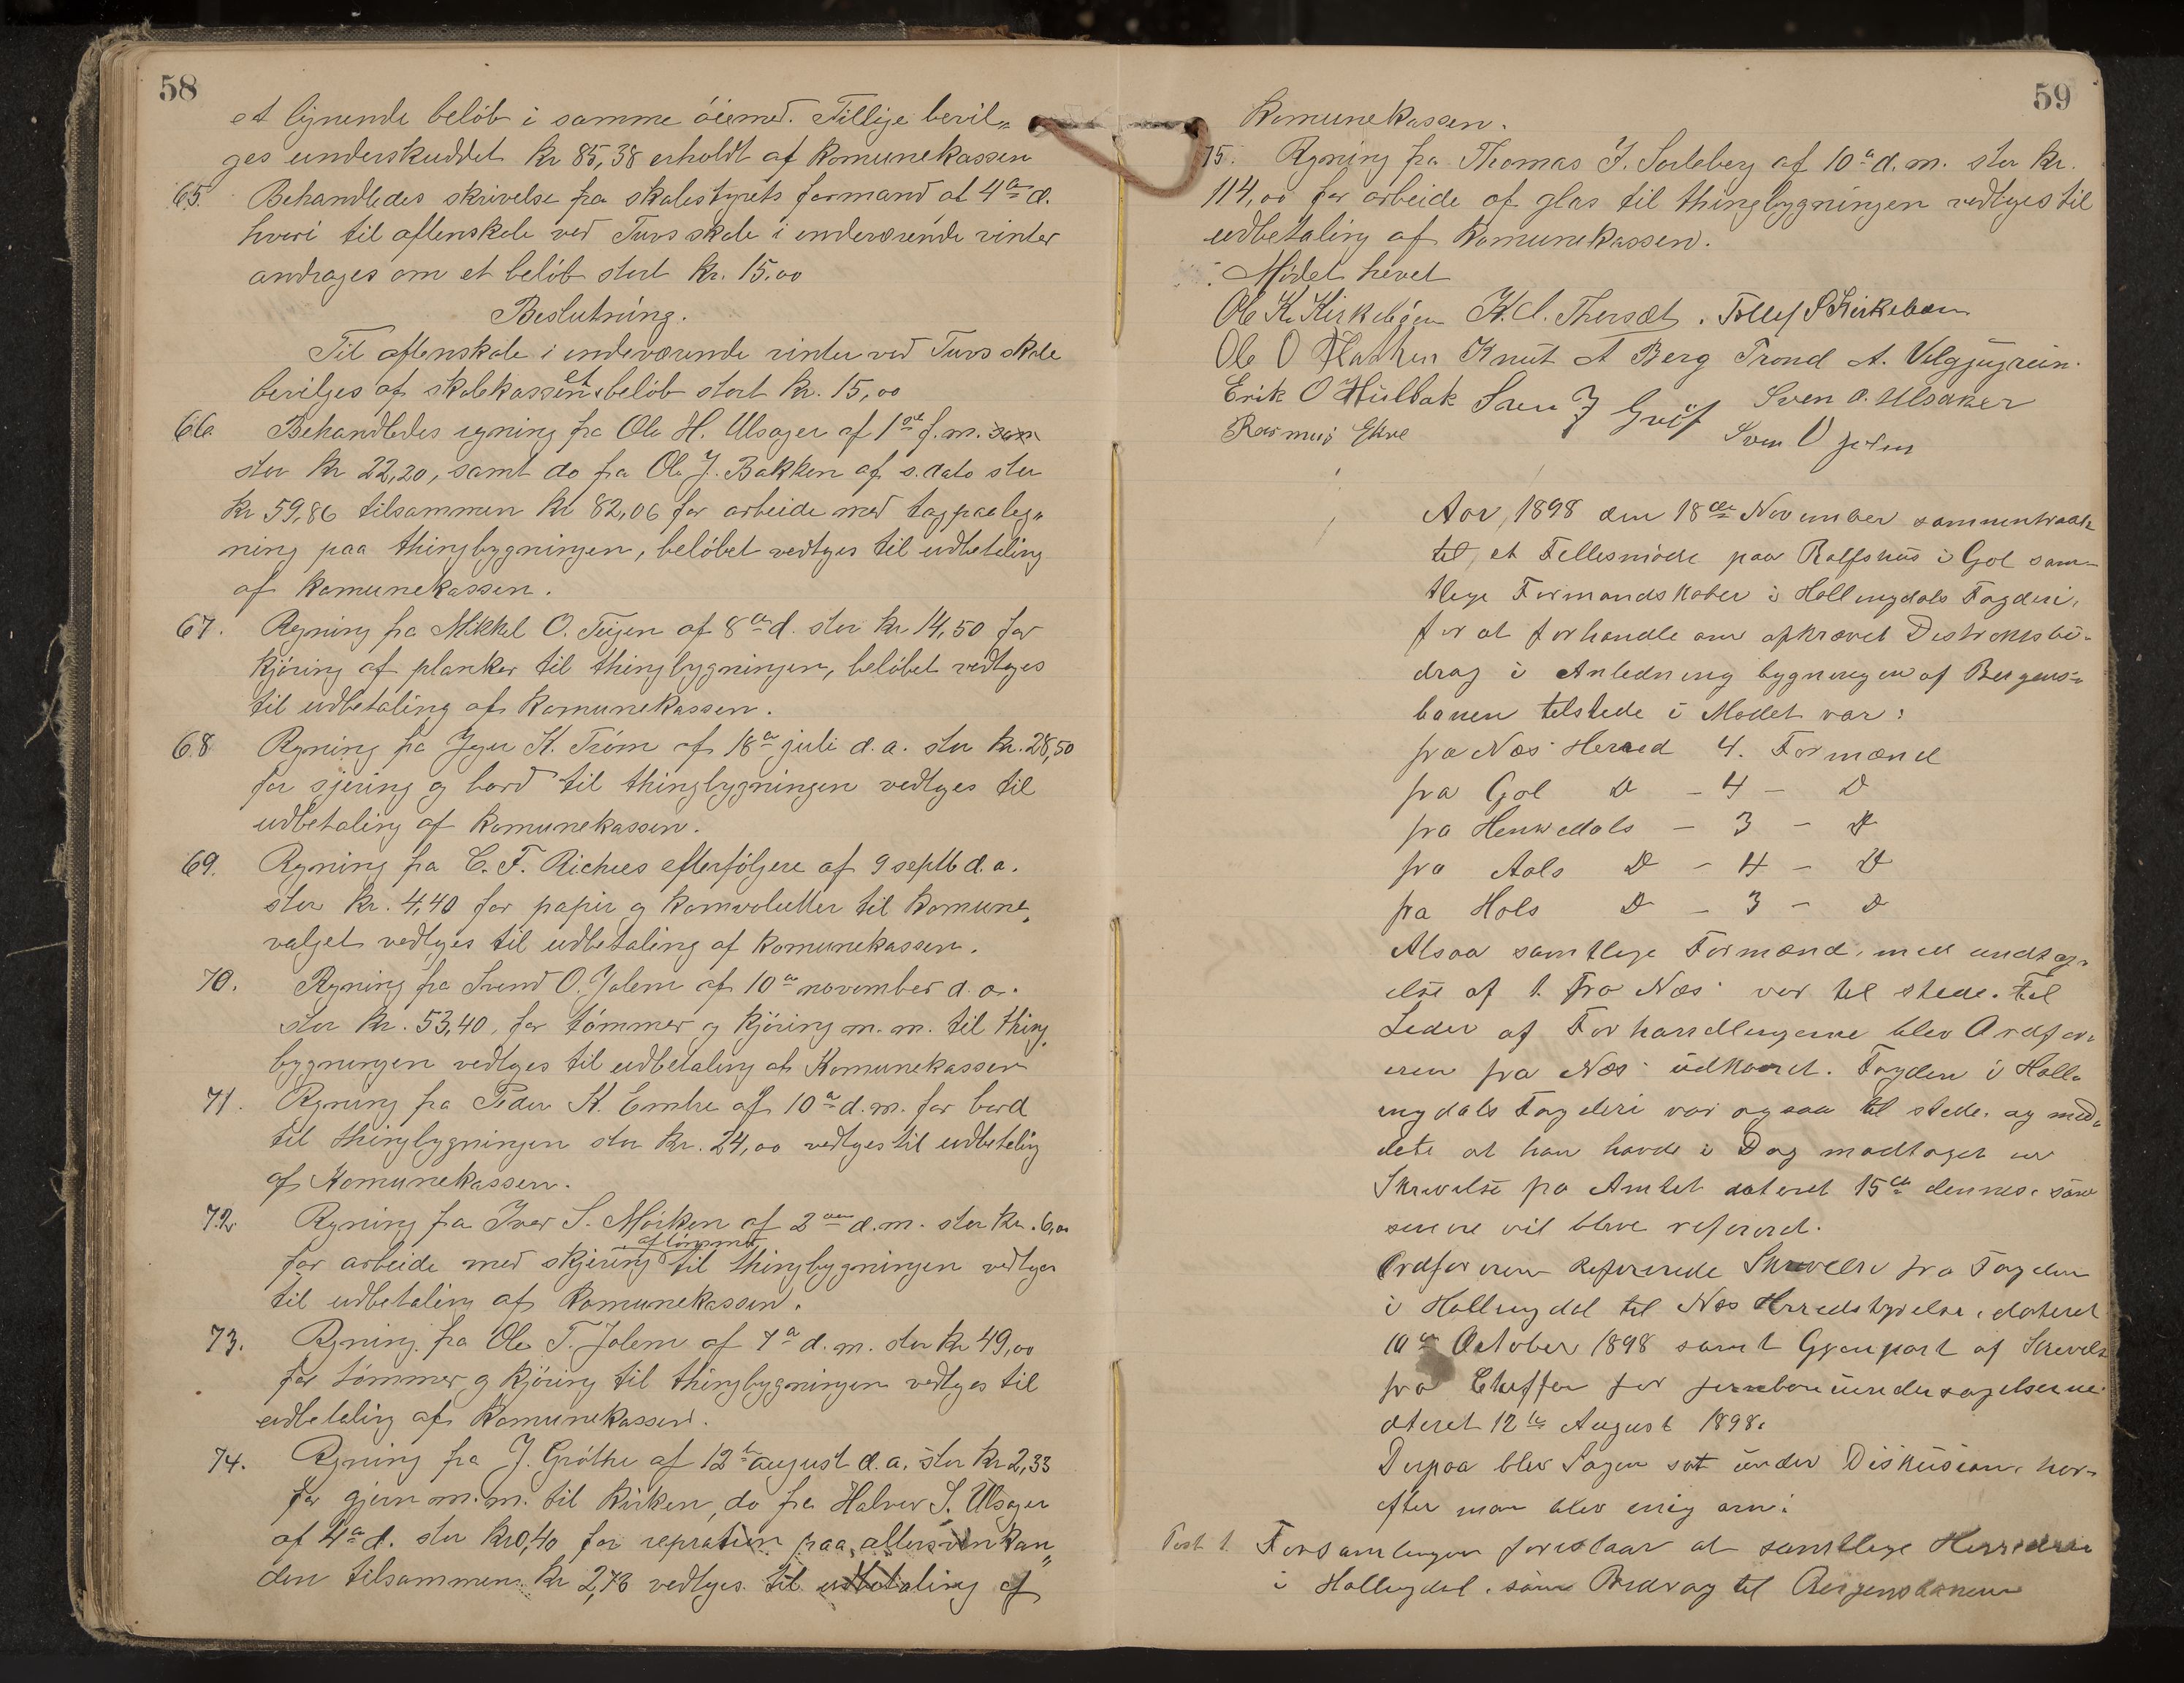 58
et lignende beløb i samme øiemed. Tillige bevil„
ges underskuddet kr 85,38 erholdt af komunekassen
65. Behandledes skrivelse fra skolestyrets formand af 4de d.
hvori til aftenskole ved Turs skole i indeværende vinter
andrages om et beløb stort kr. 15.00
Beslutning.
Til aftenskole i indeværende vinter ved Turs skole
bevilges af skolekassen et beløb stort kr. 15,00
66. Behandledes regning fra Ole H. Ulsager af 1ste f.m.
stor kr 22,20, samt do fra Ole J. Bakken af s.dato stor
kr 59,86 tilsammen kr 82,06 for arbeide med tagpaaleg„
ning paa thingbygningen, beløbet vedtges til udbetaling
af komunekassen.
67. Regning fra Mikkel O. Teigen af 8de d. stor kr 14,50 for
kjøring af planker til thingbygningen, beløbet vedtges
til udbetaling af komunekassen.
68 Regning fra K. Trøm af 18de juli d.a. stor kr. 28,50
for sjering og bord til thingbygningen vedtges til
udbetaling af komunekassen.
69. Regning fra C. F. efterfølgere af 9 septb d.a.
stor kr. 4,40 for papir og komvolutter til komune„
valget vedtges til udbetaling af komunekassen.
70. Regning fra Svend O. Jolem af 10de november d.a.
stor kr. 53,40, for tømmer og kjøring m.m. til thing„
bygningen vedtges til udbetaling af Komunekassen
71. Regning fra Peder K. af 10de d.m. for bord
til thingbygningen stor kr. 24,00 vedtges til udbetaling
af Komunekassen.
72. Regning fra Iver S. Mørken af 2den d.m. stor kr. 6,00
for arbeide med skjering af tømmer til thingbygningen vedtges
til udbetaling af komunekassen.
73. Regning fra Ole T. Jolem af 7de d.m. stor kr 49,00
for tømmer og kjøring til thingbygningen vedtges til
udbetaling af Komunekassen.
74. Regning fra J. Grøthe af 12te august d.a. stor kr 2,33
for gjern m.m. til kirken, do fra Halvor S. Ulsager
af 4de d. stor kr 0,40 for repration paa altersvinkan„
den tilsammen kr 2,73 vedtges til udbetaling af
59
komunekassen.
75. Regning fra Thomas J. Sorteberg af 10de d.m. stor kr.
114,00 for arbeide af glas til thingbygningen vedtges til
udbetaling af komunekassen.
Mødet hævet
Ole K. Kirkebøen K. A. Thorset. Tollef S Kirkebøen
Ole O Flathen Knut A Berg Trond A. Velgjugrein.
Erik O Hulbak Sven J Grøf Sven O. Ulsaker
Rasmus Ekre Sven O Jolem
Aar, 1898 den 18de November sammentraadte
til et Fellesmøde paa Rolfshus i Gol sam-
tlege Formandskaber i Hallingdals Fogderi,
for at forhandle om afkrævet Destriktsbi-
drag i Anledning bygningen af Bergens-
banen telstede i Mødet var:
fra Næs Herred 4. Formænd
fra Gol D - 4 - D
fra Hemsedals - 3 - D
fra Aals D - 4 - D
fra Hols D - 3 - D
Alsaa samtlege Formænd, med undtag-
else af 1. fra Næs var tel stede. Tel
Leder af Forhandlingerne blev Ordfør-
eren fra Næs udkaaret. Fogden i Hall-
ingdals Fogderi var ogsaa tel stede, og med-
delte at han havde i Dag modtaget en
Skrivelse fra Amtet dateret 15de dennes, som
senere vil blive refereret.
Ordføreren Refererede Skrivelse fra Fogden
i Hallingdal tel Næs Herredstyrelse, dateret
10de October 1898 samt Gjenpart af Skrivelse
fra Cheffen for jernbaneundersøgelserne
dateret 12te August 1898.
Derpaa blev Sagen sat under Diskusion, hor-
efter man blev enig om:
Post 1. Forsamlingen foreslaar at samtlege Herreder
i Hallingdal, som Bidrag tel Bergensbanen